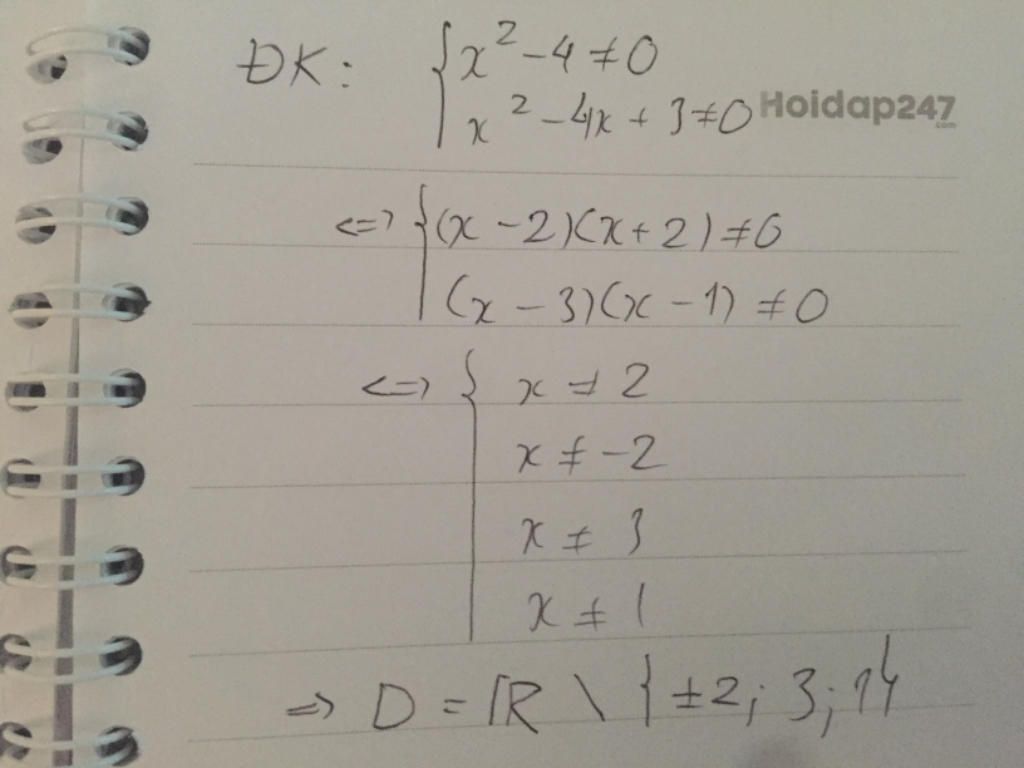 ĐK: { x² - 4 ≠ 0
x² - 4x + 3 ≠ 0
Hoidap247
.com
<=> { (x - 2)(x + 2) ≠ 0
(x - 3)(x - 1) ≠ 0
<=> { x ≠ 2
x ≠ -2
x ≠ 3
x ≠ 1
=> D = ℝ \ { ±2; 3; 1}